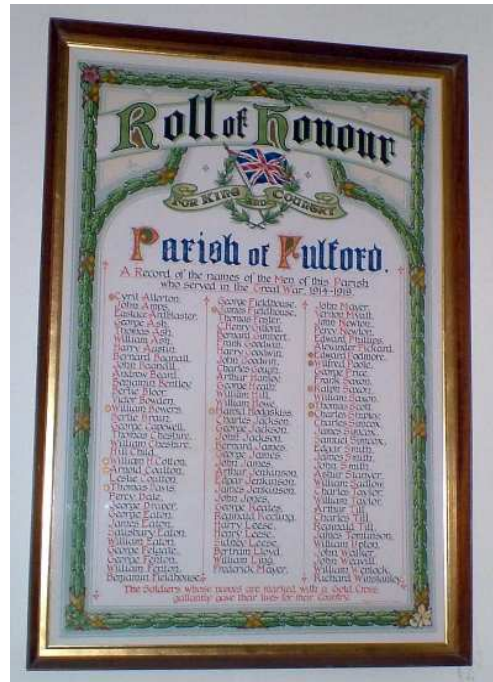 Roll of Honour
FOR KING AND COUNTRY
Parish of Fulford.
A Record of the names of the Men of this Parish
who served in the Great War, 1914-1919.
Cyril Allerton.
John Amos.
George Ash.
Thomas Ash.
William Ash.
Harry Austin.
Bernard Bagnall.
John Bagnall.
Andrew Beard.
Benjamin Bentley.
Bertie Bloor.
Victor Bowden.
William Bowers.
Bertie Brain.
George Capewell.
Thomas Cheshire.
William Cheshire.
William H. Cotton.
Arnold Coulton.
Leslie Coulton.
Thomas Davis.
Percy Dale.
George Draper.
George Eaton.
James Eaton.
Salisbury Eaton.
William Eaton.
George Felgate.
George Fenton.
William Fenton.
Benjamin Fieldhouse.
George Fieldhouse.
James Fieldhouse.
Thomas Foster.
Frank Goodwin.
Harry Goodwin.
John Goodwin.
Charles Gough.
Arthur Hanley.
George Heath.
William Hill.
Charles Jackson.
George Jackson.
John Jackson.
Bernard James.
George James.
John James.
Arthur Jenkinson.
Edgar Jenkinson.
James Jenkinson.
John Jones.
George Keates.
Harry Leese.
Henry Leese.
Sidney Leese.
Bertram Lloyd.
William Ling.
Frederick Mayer.
John Mayer.
John Newton.
Percy Newton.
Edward Phillips.
Alexander Pickard.
Edward Podmore.
Alfred Poole.
George Price.
Frank Saxon.
Ralph Saxon.
William Saxon.
Thomas Scott.
Charles Shipley.
Charles Simcox.
James Simcox.
Samuel Simcox.
Edgar Smith.
James Smith.
John Smith.
William Tadlow.
Charles Taylor.
William Taylor.
Arthur Till.
Charles Till.
Reginald Till.
James Tomlinson.
William Upton.
John Walker.
John Weavall.
William Wenlock.
Richard Winstanley.
The Soldiers whose names are marked with a Gold Cross
gallantly gave their lives for their Country.